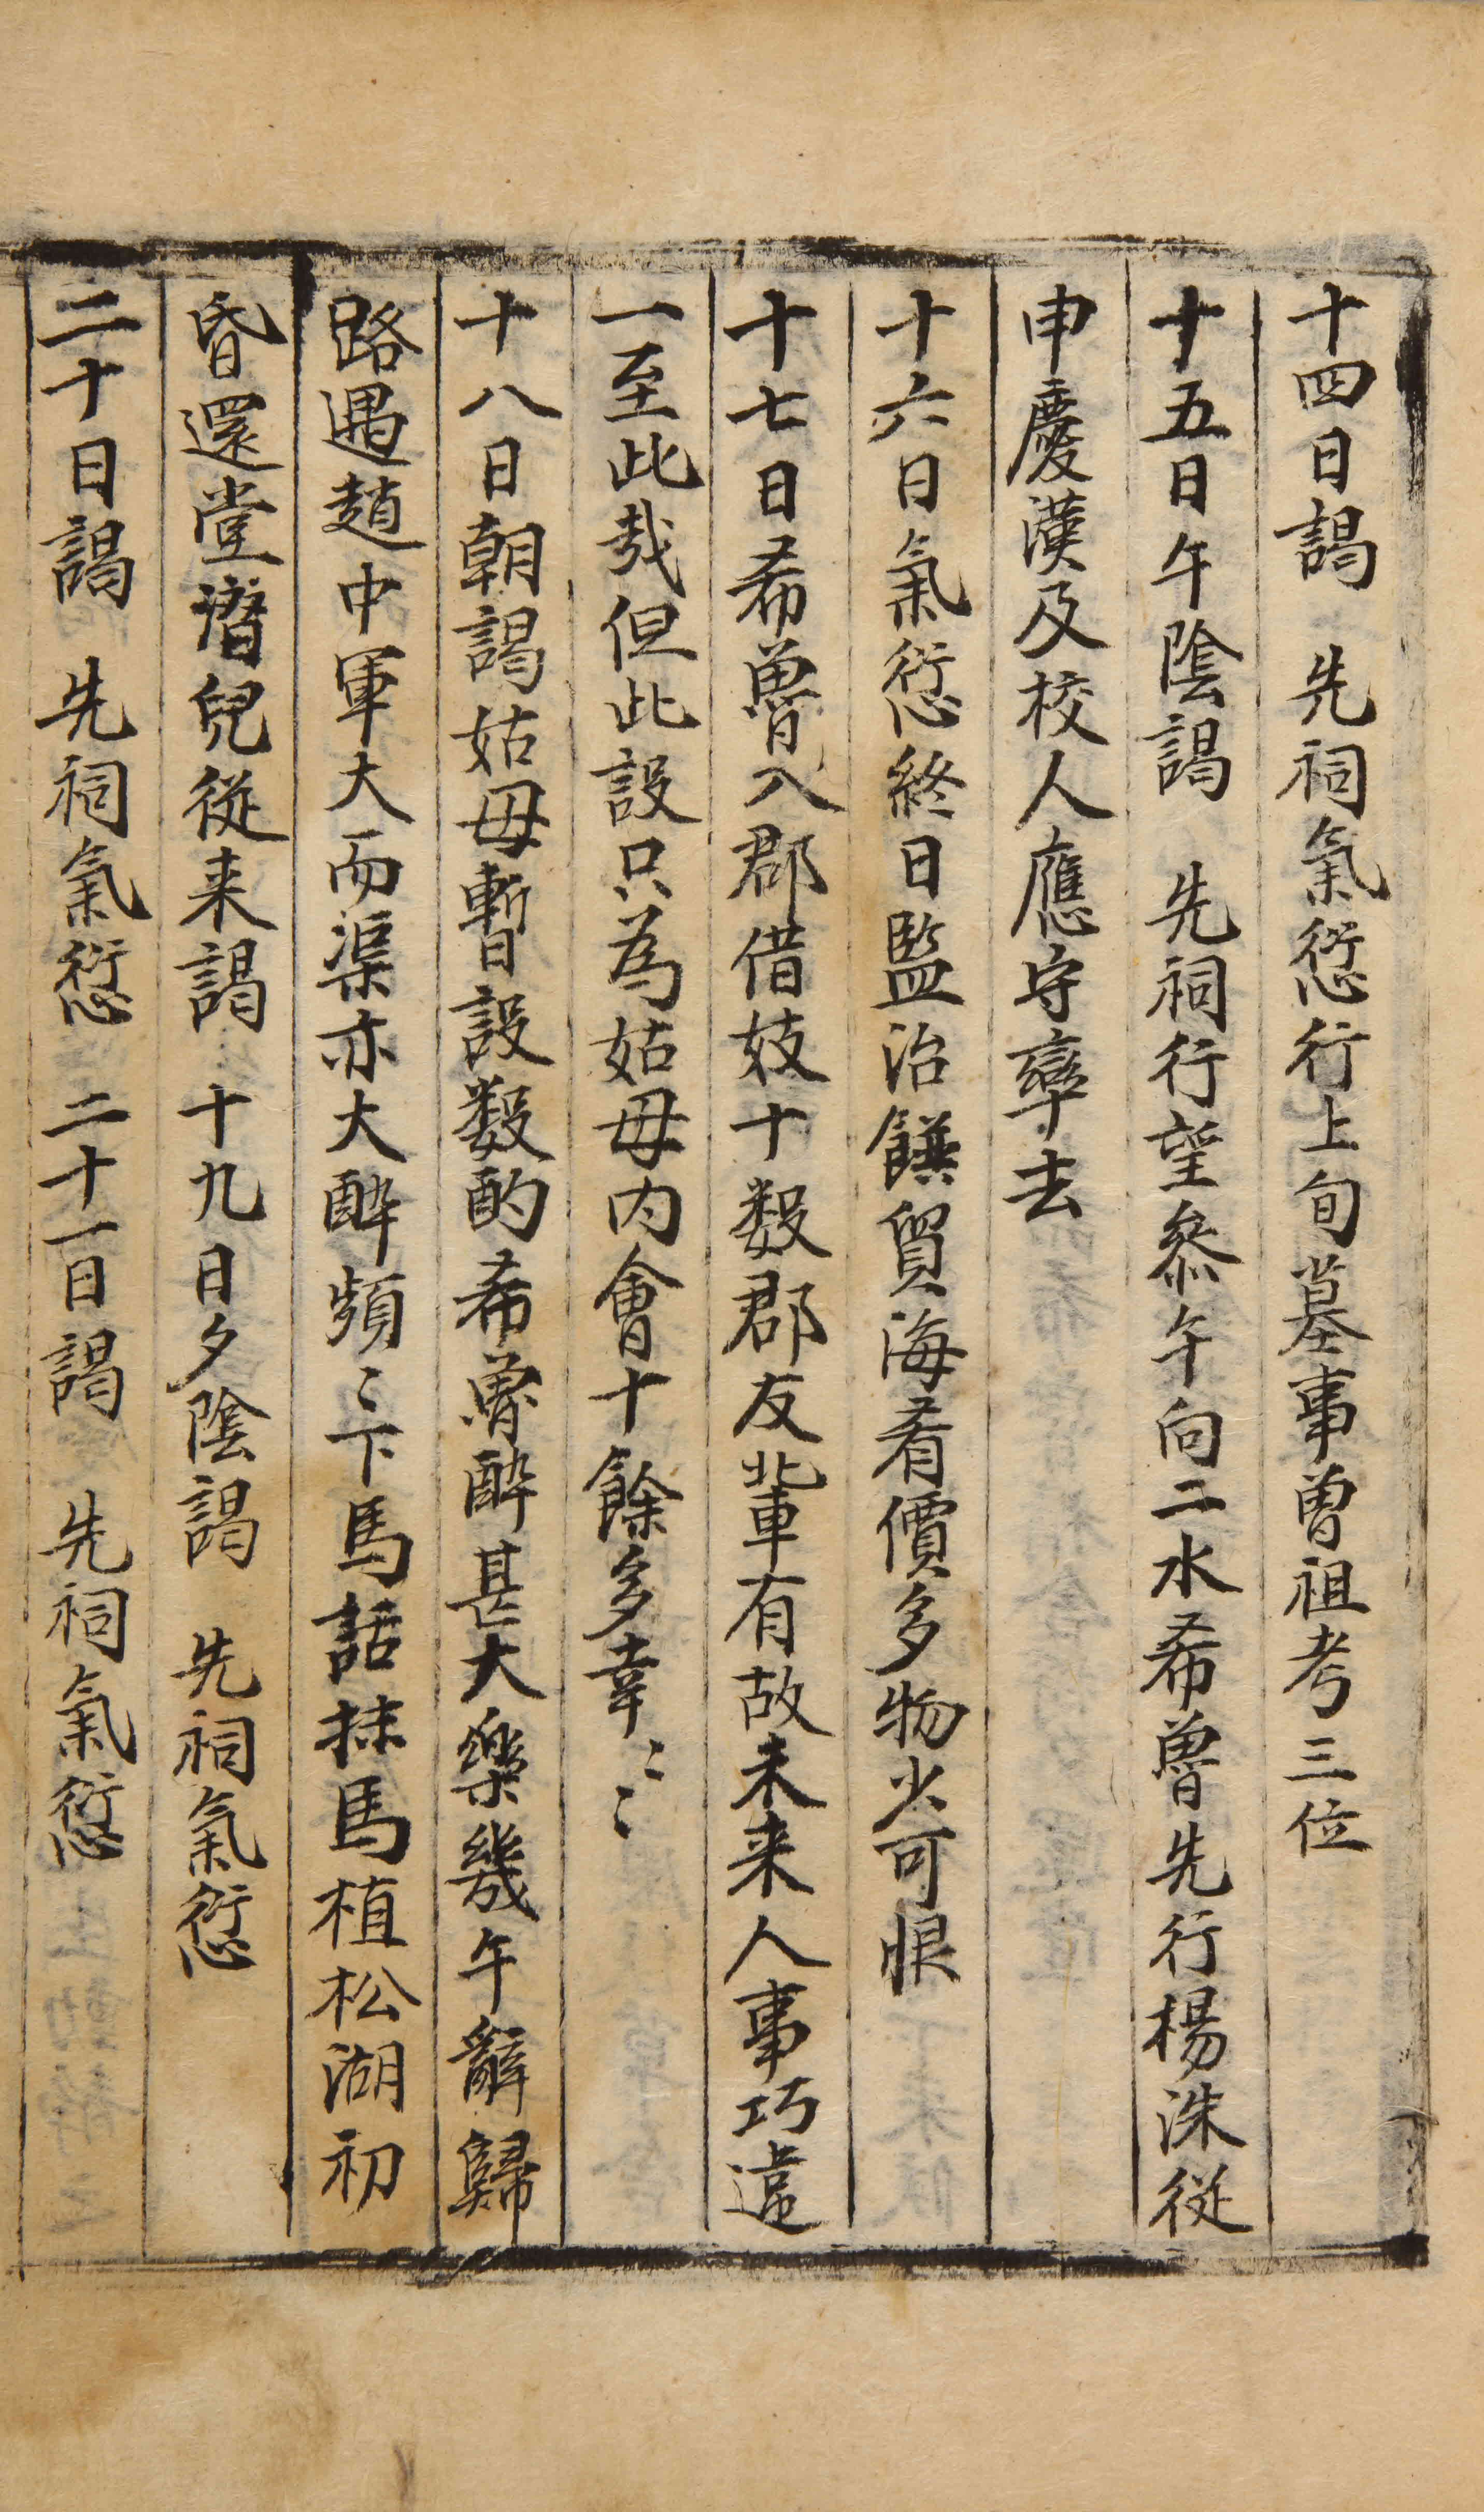 十四日謁　先祠氣愆行上旬墓事曾祖考三位
十五日午陰謁　先祠行望叅午向二水希曾先行楊洙從
申慶漢及校人應守孿去
十六日氣愆終日監治饌貿海肴價多物少可恨
十七日希曾入郡借妓十数郡友輩有故未来人事巧違
一至此哉但此設只為姑母内會十餘多幸〻〻
十八日朝謁姑母暫設数酌希曾醉甚大樂幾午辭歸
路遇趙中軍大而渠亦大醉頻〻下馬話抹馬植松湖初
昏還堂濳兒從来謁　十九日夕陰謁　先祠氣愆
二十日謁　先祠氣愆　二十一日謁　先祠氣愆